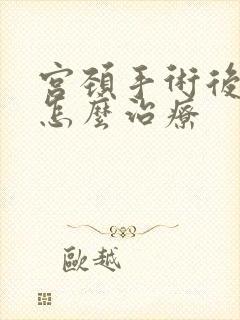 宮頸手術後
怎麼治療
歐越